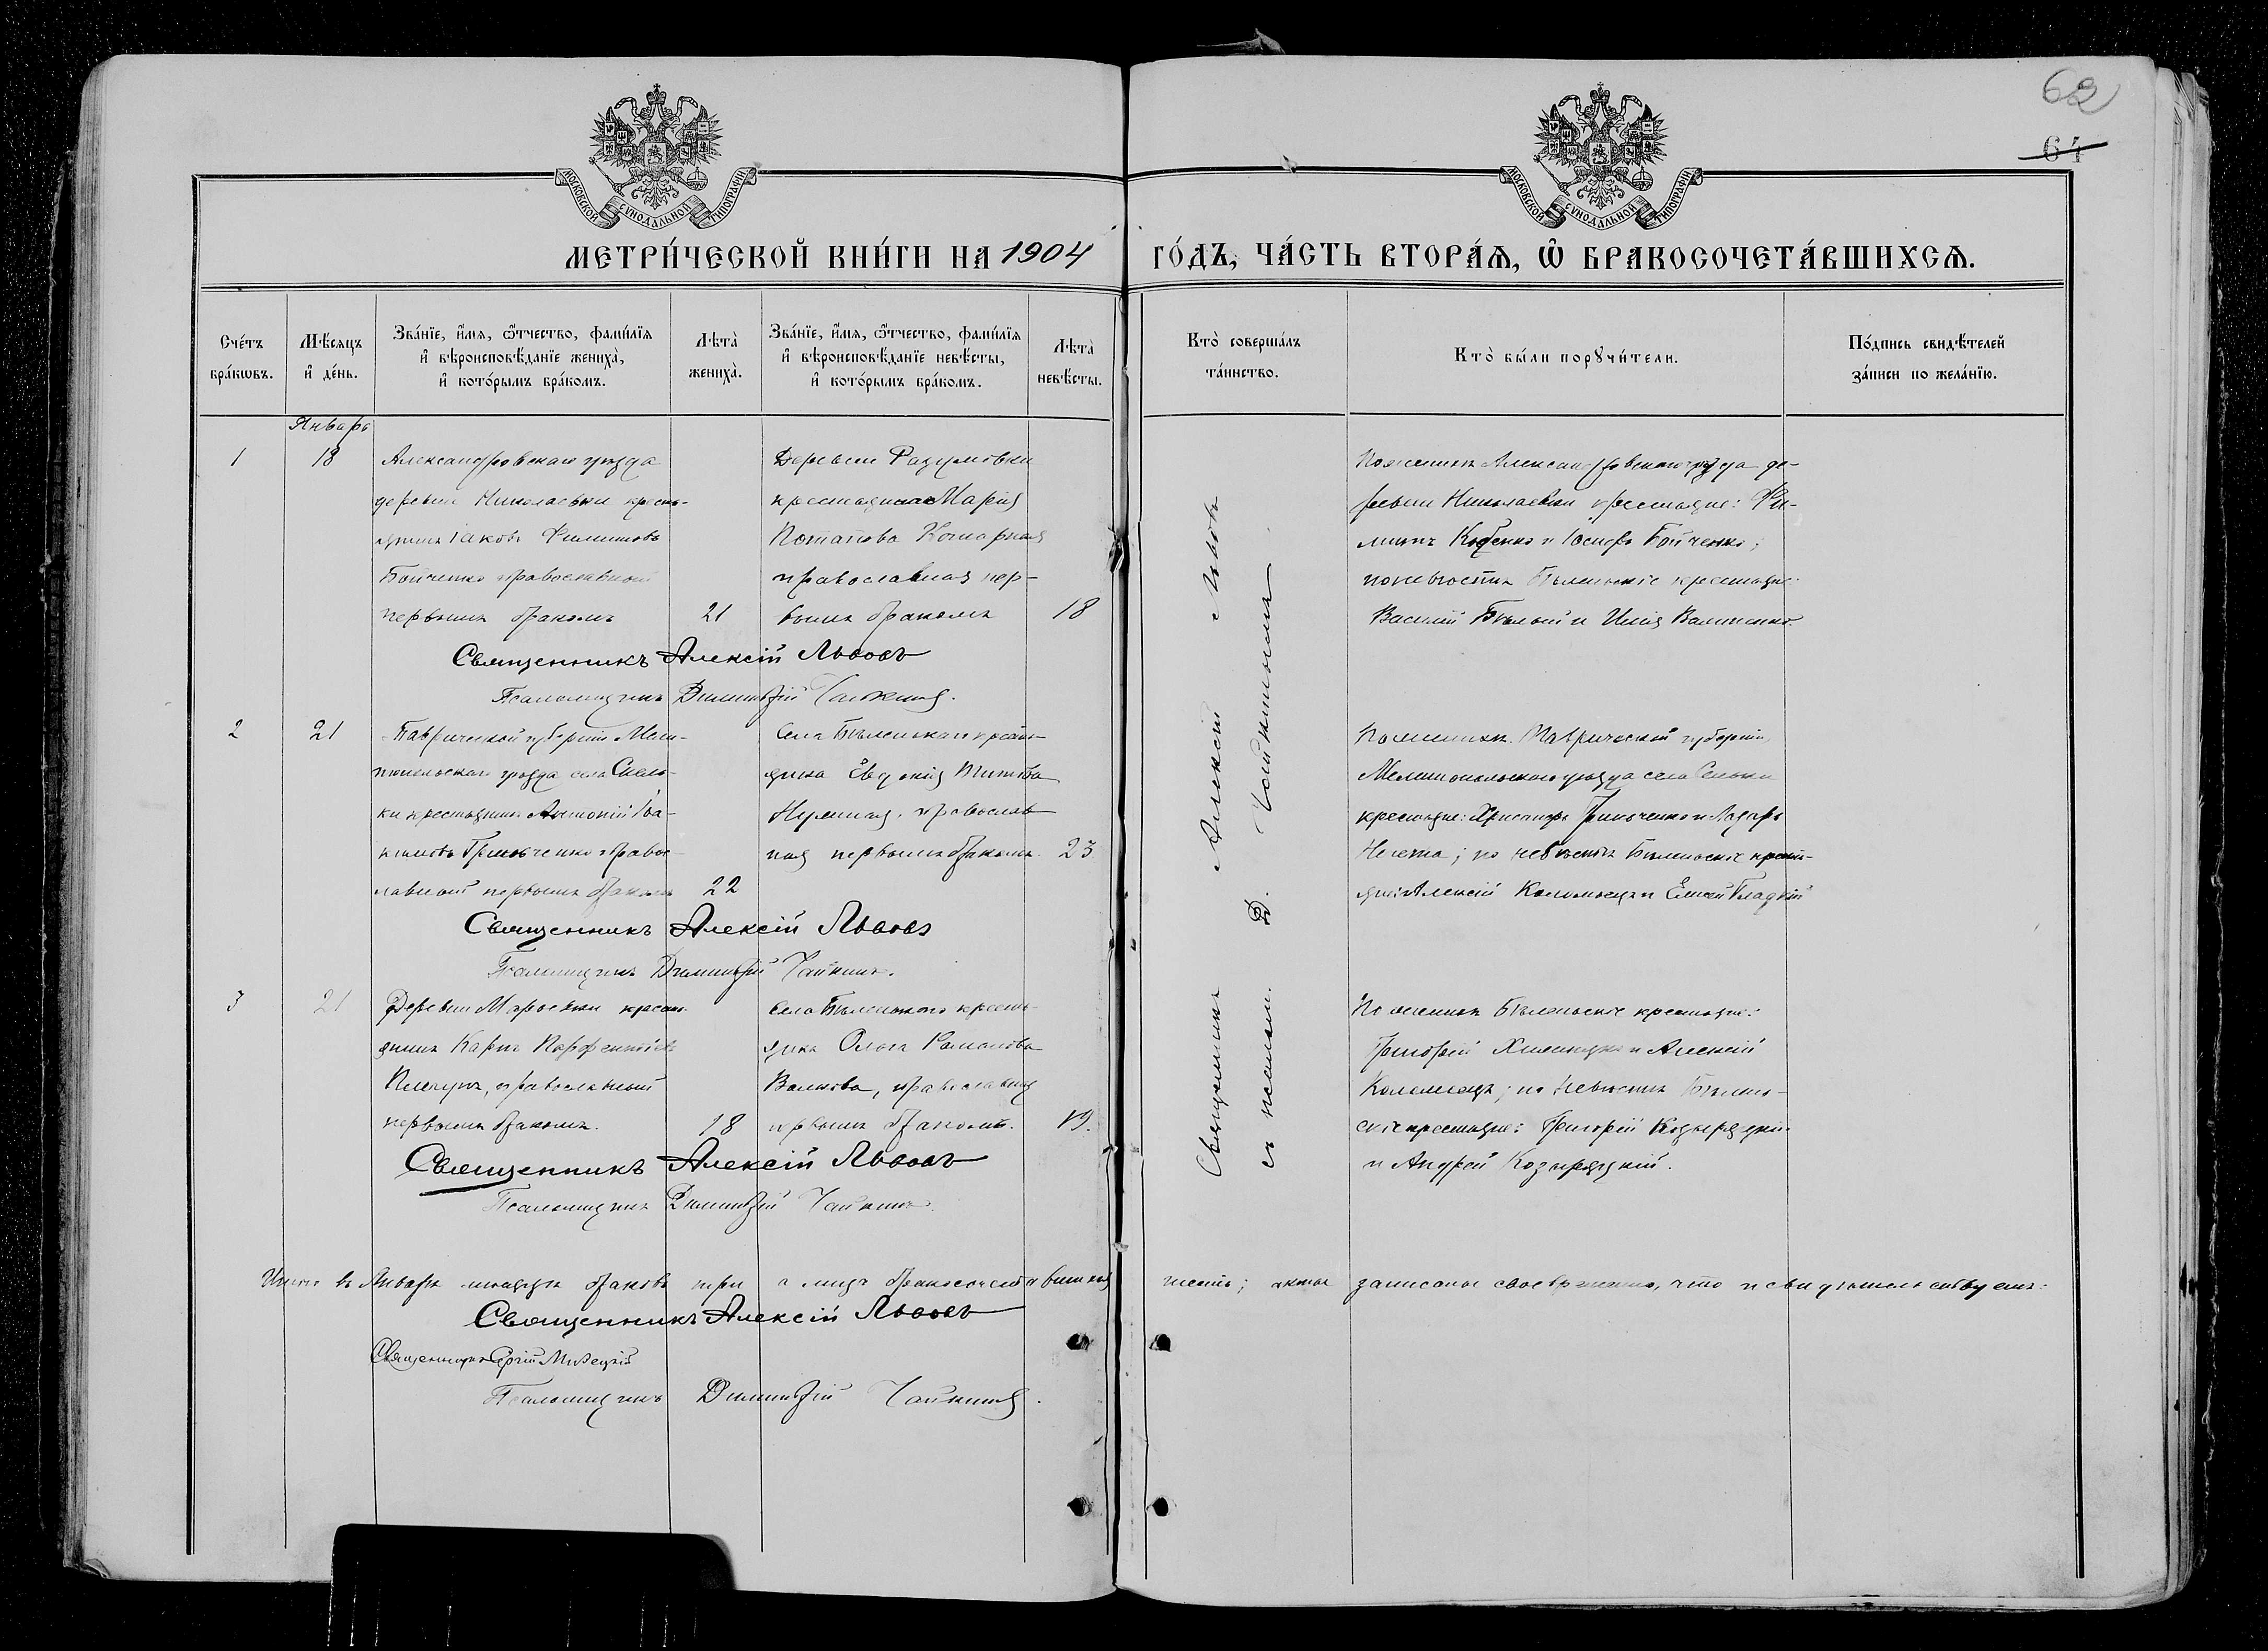 62
64
МОСКОВСКОЙ СѴНОДАЛЬНОЙ ТИПОГРАФІИ
МОСКОВСКОЙ СѴНОДАЛЬНОЙ ТИПОГРАФІИ
МЕТРИ́ЧЕСКОЙ КНИ́ГИ НА 1904 ГО́ДЪ, ЧА́СТЬ ВТОРА́Ѧ, Ѽ БРАКОСОЧЕТА́ВШИХСѦ.
Сче́тъ бра́кѡвъ.
Мѣ́сяцъ и҆ де́нь.
Зва́нїе, и҆́мѧ, ѻ҆́тчество, фами́лїѧ
и҆ вѣроисповѣ́данїе жениха̀,
и҆ кото́рымъ бра́комъ.
Лѣта̀ жениха̀.
Зва́нїе, и҆́мѧ, ѻ҆́тчество, фами́лїѧ
и҆ вѣроисповѣ́данїе невѣ́сты,
и҆ кото́рымъ бра́комъ.
Лѣта̀ невѣ́сты.
Кто̀ соверша́лъ
та́инство.
Кто̀ бы́ли порꙋчи́тели.
По́дпись свидѣ́телей
за́писи по жела́нїю.
Январь
1
18
Александровскаго уѣзда
деревни Николаевки кресть-
янинъ Іаковъ Филиповъ
Бойченко православный
первымъ бракомъ
21
Деревни Разумовки
крестьянка Марія
Потапова Комарная
православная пер-
вымъ бракомъ
18
По женихѣ Александровскаго уѣзда де-
ревни Николаевки крестьяне: Фи-
липпъ Кобенко и Іосифъ Бойченко;
по невѣстѣ Бѣленькіе крестьяне:
Василій Бѣлый и Илія
Священникъ Алексій Львовъ
Псаломщикъ Димитрій Чайкинъ.
2
21
Таврической губерніи Мели-
топольскаго уѣзда села Скель-
ки крестьянинъ Антоній Іоа-
кимовъ Гринченко правос-
лавный первымъ бракомъ
22
Села Бѣленькаго кресть-
янка Евдокія Титова
православ-
ная первымъ бракомъ.
23
По женихѣ Таврической губерніи
Мелитопольскаго уѣзда села Скельки
крестьяне: Гринченко и Лазарь
по невѣстѣ Бѣленькіе кресть-
яне: Алексій Коломоецъ и Елисей Гладкій
Священникъ Алексій Львовъ
Псаломщикъ Димитрій Чайкинъ.
3
21
Деревни Марьевки кресть-
янинъ Карпъ Парфентіевъ
православный
первымъ бракомъ.
18
Села Бѣленькаго кресть-
янка Ольга Романова
Волкова, православная
первымъ бракомъ.
19.
По женихѣ Бѣленькіе крестьяне:
Григорій и Алексій
Коломоецъ; по невѣстѣ Бѣлень-
скіе крестьяне: Григорій
и Андрей Козырядскій.
Священникъ Алексій Львовъ
Псаломщикъ Димитрій Чайкинъ.
Священникъ Алексій Львовъ
съ псалом. Д. Чайкинымъ.
Итого въ Январѣ мѣсяцѣ браковъ три а лицъ бракосочетавшихся шесть; акты записаны своевременно, что и свидѣтельствуемъ:
Священникъ Алексій Львовъ
Священникъ Сергій
Псаломщикъ Димитрій Чайкинъ.